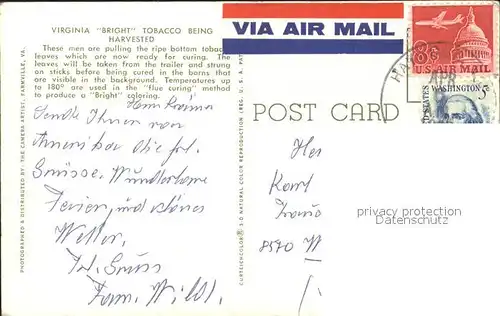 VIRGINIA "BRIGHT" TOBACCO BEING
HARVESTED
These men are pulling the ripe bottom tobacco
leaves which are now ready for curing. The
leaves will be taken from the trailer and strung
on sticks before being cured in the barns that
are visible in the background. Temperatures up
to 180° are used in the "flue curing" method
to produce a "Bright" coloring.
PHOTOGRAPHED & DISTRIBUTED BY: THE CAMERA ARTIST, FARMVILLE, VA.
Sende Ihnen von
Amerika die
Grüsse, Wunderbare
Ferien, und schönes
Wetter,
Grüss
Fam. Wild.
CURTEICHCOLOR® 3-D NATURAL COLOR REPRODUCTION (REG. U.S.A. PAT.
VIA AIR MAIL
8¢
U.S. AIR MAIL
WASHINGTON 5¢
POST CARD
8570 W
privacy protection
veikkos-archiv.com